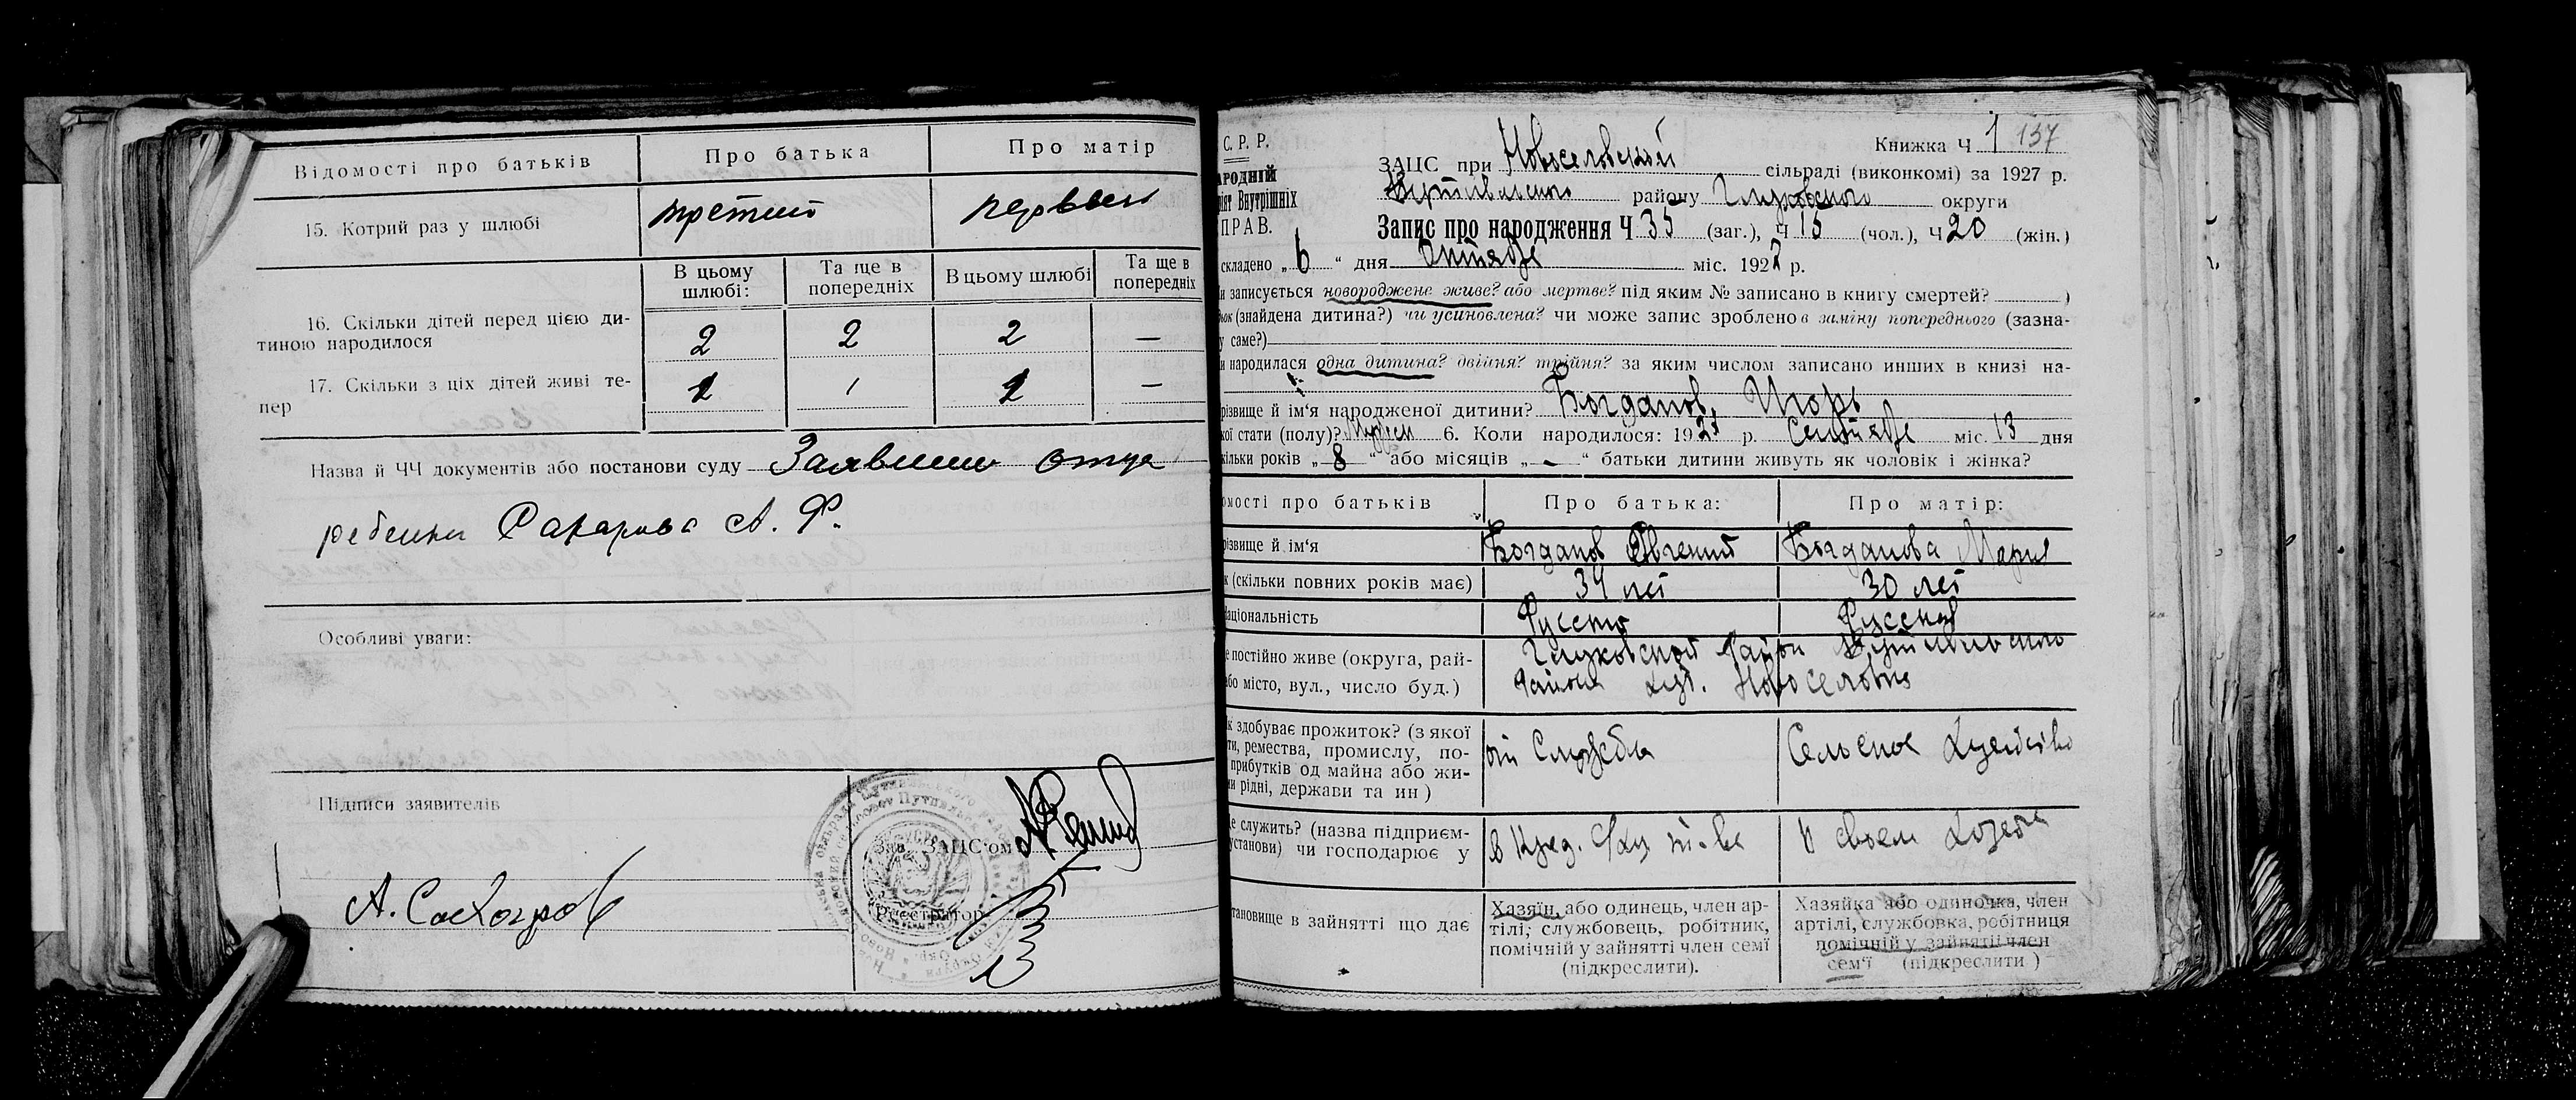 Відомості про батьків
Про батька
Про матір
15. Котрий раз у шлюбі
третий
первый
В цьому шлюбі:
Та ще в попередніх
В цьому шлюбі
Та ще в попередніх
16. Скільки дітей перед цією ди-
тиною народилося
2
2
2
—
17. Скільки з ціх дітей живі те-
пер
1
—
Назва й ЧЧ документів або постанови суду Заявление отца
ребенка А. Ф.
Особливі уваги:
Підписи заявителів
Зав. ЗАЦС'ом
Реєстратор
А.
С. Р. Р.
Книжка Ч 1 137
ЗАЦС при Новоселовской сільраді (виконкомі) за 1927 р.
Путивльского району Глуховского округи
ПРАВ.
Внутрішніх
Запис про народження Ч 35 (заг.), Ч 15 (чол.), Ч 20 (жін.)
складено „6“ дня Октября міс. 1927 р.
записується новороджене живе? або мертве? під яким № записано в книгу смертей? )
(знайдена дитина?) чи усиновлена? чи може запис зроблено в заміну попереднього (зазна-
саме?)
народилася одна дитина? двійня? трійня? за яким числом записано инших в книзі на-
й ім'я народженої дитини? Богданов, Игорь
стати (полу)? 6. Коли народилося: 192 р. Сентября міс. 13 дня
років „8“ або місяців „-“ батьки дитини живуть як чоловік і жінка?
про батьків
Про батька:
Про матір:
й ім'я
Богданов Евгений
Богданова Мария
(скільки повних років має)
34 лет
30 лет
Русский
Русская
постійно живе (округа, рай-
місто, вул., число буд.)
Глуховской Путивльского
района хут. Новоселовка
здобуває прожиток? (з якої
ремества, промислу, по-
прибутків од майна або жи-
рідні, держави та ин)
Службы
Сельское
служить? (назва підприєм-
чи господарює у
в
в своем
в зайнятті що дає
Хазяїн, або одинець, член ар-
тілі, службовець, робітник,
помічній у зайнятті член семї
(підкреслити).
Хазяйка або одиночка, член
артілі, службовка, робітниця
помічній у зайнятті член
сем'ї (підкреслити)